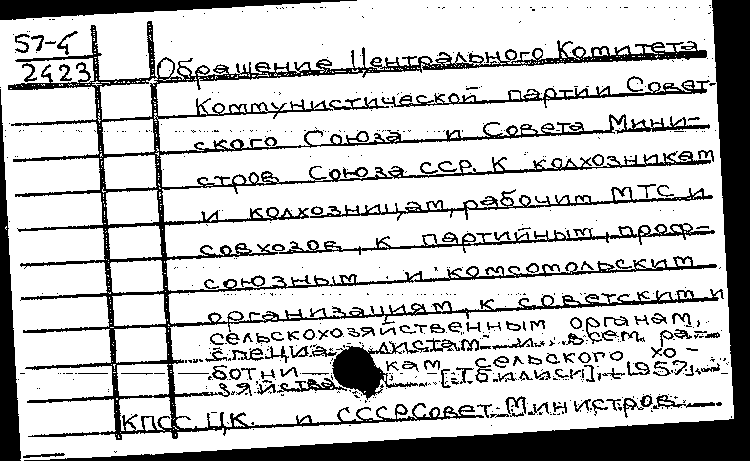 57-4
2423
Обращение Центрального Комитета
Коммунистической партии Совет-
ского Союза и Совета Мини-
стров Союза ССР. К колхозникам
и колхозницам, рабочим МТС и
совхозов, к партийным, проф-
союзным и комсомольским
организациям, к советским и
сельскохозяйственным органам,
специалистам и всем ра-
ботникам сельского хо-
зяйства. [Тбилиси], 1957.
КПСС. ЦК. и СССР. Совет Министров.